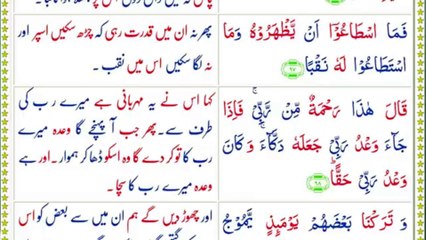 فَمَا اسْطَاعُوْٓا اَنْ يَّظْهَرُوْهُ وَمَا
اسْتَطَاعُوْا لَهٗ نَقْبًا ﴿۹۷﴾
پھر نہ ان میں قدرت رہی کہ چڑھ سکیں اسپر اور
نہ لگا سکیں اس میں نقب۔
قَالَ هٰذَا رَحْمَةٌ مِّنْ رَّبِّيْ ۚ فَاِذَا
جَآءَ وَعْدُ رَبِّيْ جَعَلَهٗ دَكَّآءَ ۚ وَكَانَ
وَعْدُ رَبِّيْ حَقًّا ﴿۹۸﴾
کہا اس نے یہ مہربانی ہے میرے رب کی
طرف سے۔ پھر جب آ پہنچے گا وعدہ میرے
رب کا تو کر دے گا وہ اسکو ڈھا کر ہموار۔ اور ہے
وعدہ میرے رب کا سچا۔
وَ تَرَكْنَا بَعْضَهُمْ يَوْمَئِذٍ يَّمُوْجُ
اور چھوڑ دیں گے ہم ان میں سے بعض کو اس